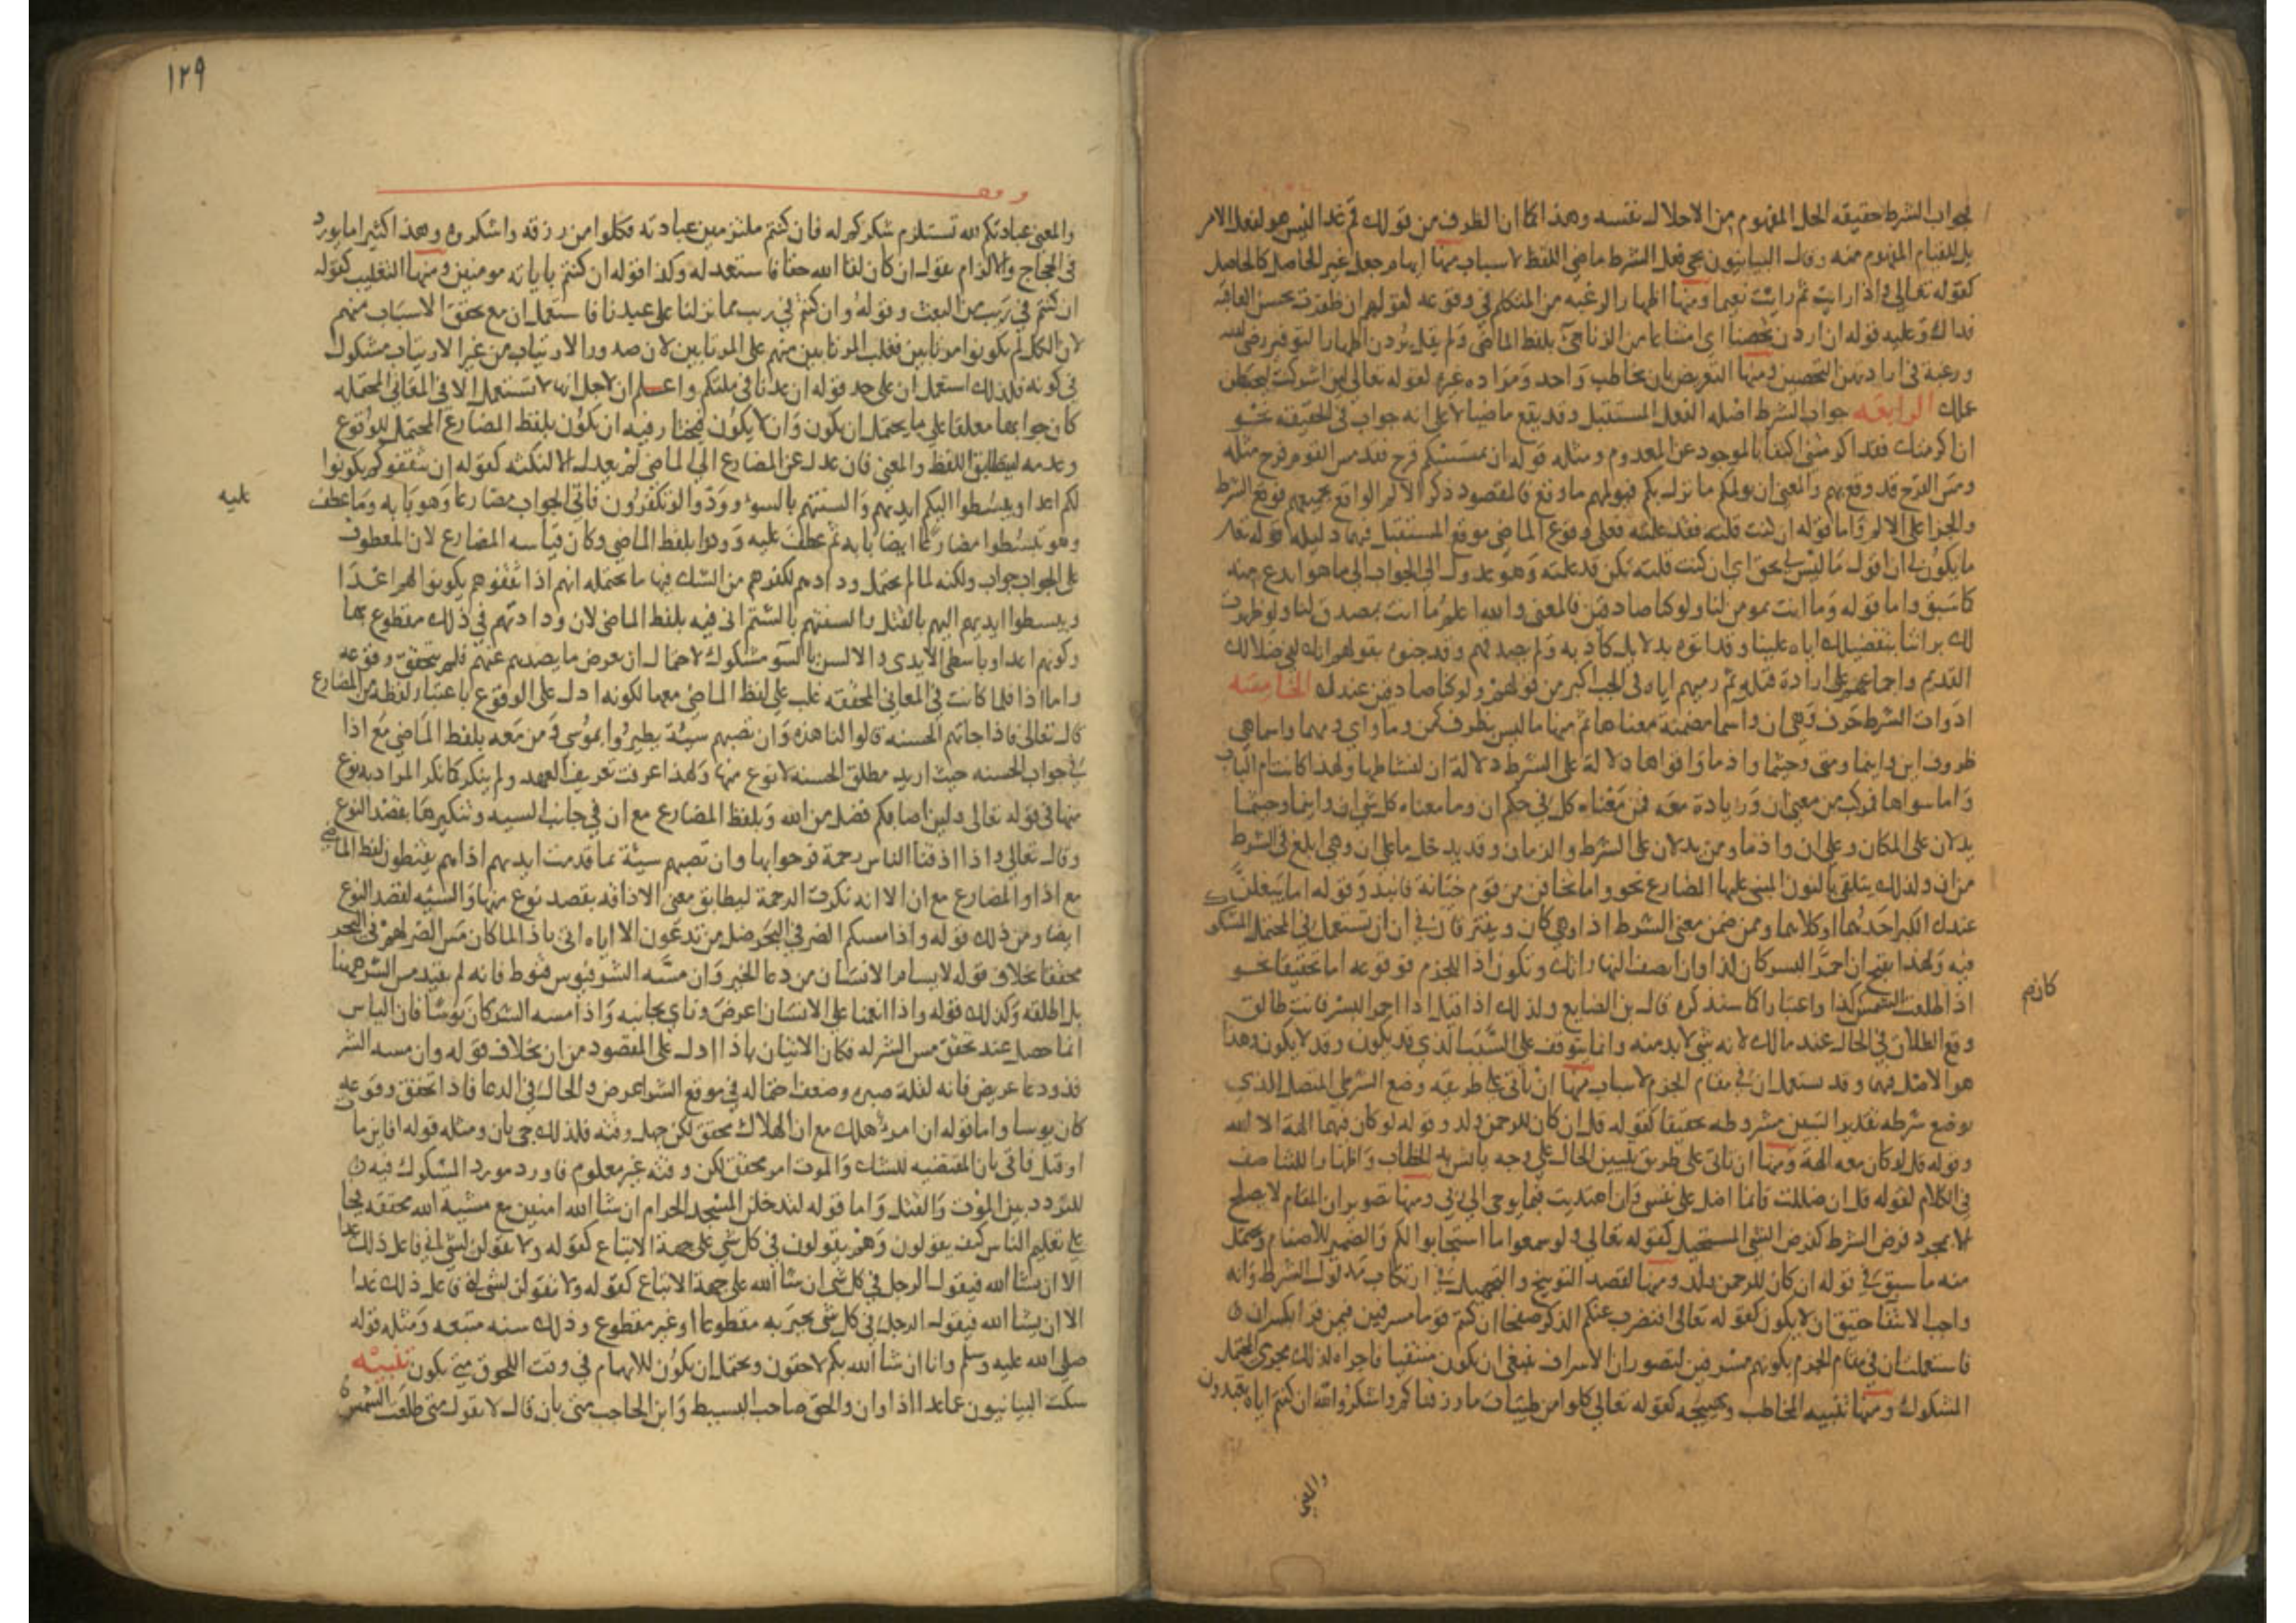 فجواب الشرط حقيقه الحل المفهوم من الاحلال نفسه وهذا كما ان الظرف من قولك ثم غدا ليس هو لفعل الامر
بل للقيام المفهوم منه وقال البيانيون يجي فعل الشرط ماضي اللفظ لاسباب منها ايهام جعل غير الحاصل كالحاصل
كقوله تعالى واذا رايت ثم رايت نعيما ومنها اظهار الرغبه من المتكلم في وقوعه كقولهم ان ظفرت بحسن العاقبه
فذاك وعليه قوله ان اردن تحصنا اي امتناعا من الزنا جيء بلفظ الماضي ولم يقل يردن اظهارا لتوفير رضى الله
ورغبة في ارادتهن التحصين ومنها التعريض بان يخاطب واحد ومراده غيره كقوله تعالى لين اشركت ليحبطن
عملك الرابعه جواب الشرط اصله الفعل المستقبل وقد يقع ماضيا لا على انه جواب في الحقيقه نحو
ان اكرمتك فقد اكرمتني اكتفا بالموجود عن المعدوم ومثله قوله ان يمسسكم قرح فقد مس القوم قرح مثله
ومس القرح قد وقع بهم والمعنى ان يولمكم ما نزل بكم فيولمهم ما وقع فالمقصود ذكر الالم الواقع بجميعهم فوقع الشرط
والجزا على الالم واما قوله ان كنت قلته فقد علمته فعلى وقوع الماضي موقع المستقبل فيهما دليله قوله تعا
ما يكون لي ان اقول ما ليس لي بحق اي ان كنت قلته تكن قد علمته وهو عدول الى الجواب الى ما هو ابدع منه
كما سبق واما قوله وما انت بمومن لنا ولو كنا صادقين فالمعنى والله اعلم ما انت بمصدق لنا ولو ظهرت
لك براتنا بتفضيلك اياه علينا وقد اتوه بدلايل كاذبه ولم يصدقهم وقد جنوه بقولهم انك لفي ضلالك
القديم واجماعهم على ارادة قتله ثم رميهم اياه في الجب اكبر من قولهم ولو كنا صادقين عندك الخامسه
ادوات الشرط حرف وهي ان واسما مضمنة معناها ثم منها ما ليس بظرف كمن وما واي ومهما واسما هي
ظروف اين واينما ومتى وحيثما واذ ما واقواها دلالة على الشرط دلالة ان لبساطتها ولهذا كانت ام الباب
واما سواها فمركب من معنى ان وزيادة معه فمن معناه كل في حكم ان وما معناه كل شي ان واينما وحيثما
يدلان على المكان وعلى ان واذ ما ومتى يدلان على الشرط والزمان وقد يدخل ما على ان وهي ابلغ في الشرط
من ان ولذلك يتلقى بالنون المبني عليها المضارع نحو واما تخافن من قوم خيانة فانبذ وقوله اما يبلغن
عندك الكبر احدهما او كلاهما وممن ضمن معنى الشرط اذا وهي كان ويفترقان في ان ان تستعمل في المحتمل المشكوك
فيه ولهذا يقبح ان احمر البسر كان كذا وان انتصف النهار اتك وتكون اذا للجزم فوقوعه اما تحقيقا نحو
اذا طلعت الشمس كذا واعتبارا كما سنذكره قال بن الضايع ولذلك اذا قيل اذا احمر البسر فانت طالق
وقع الطلاق في الحال عند مالك لانه شي لا بد منه وانما يتوقف على السبب الذي قد يكون وقد لا يكون وهذا
هو الاصل فيهما وقد تستعمل ان في مقام الجزم لاسباب منها ان تاتي على طريقه وضع الشرطي المتصل الذي
يوضع شرطه تقديرا لتبيين مشروطه تحقيقا كقوله قل ان كان للرحمن ولد وقوله لو كان فيهما الهة الا الله
وقوله قل لو كان معه الهة ومنها ان تاتي على طريق تبيين الحال على وجه يانس به المخاطب واظهارا للتناصف
في الكلام كقوله قل ان ضللت فانما اضل على نفسي وان اهتديت فبما يوحي الي ربي ومنها تصوير ان المقام لا يصلح
الا بمجرد فرض الشرط كفرض الشي المستحيل كقوله تعالى ولو سمعوا ما استجابوا لكم والضمير للاصنام ويحتمل
منه ما سبق في قوله ان كان للرحمن ولد ومنها لقصد التوبيخ والتجهيل في ارتكاب مدلول الشرط وانه
واجب الانتفا حقيق ان لا يكون كقوله تعالى افنضرب عنكم الذكر صفحا ان كنتم قوما مسرفين فيمن قرا بكسر ان
فاستعملت ان في مقام الجزم بكونهم مسرفين لتصور ان الاسراف ينبغي ان يكون منتفيا فاجراه لذلك مجرى المحتمل
المشكوك ومنها تنبيه المخاطب وتهييجه كقوله تعالى كلوا من طيبات ما رزقناكم واشكروا لله ان كنتم اياه تعبدون
والمعنى
كان م
١٢٩
وقف
والمعنى عبادتكم لله تستلزم شكركم له فان كنتم ملتزمين عبادته فكلوا من رزقه واشكروه وهذا كثيرا ما يورد
في الحجاج والالزام تقول ان كان لقا الله حقا فاستعد له وكذا قوله ان كنتم باياته مومنين ومنها التغليب كقوله
ان كنتم في ريب من البعث وقوله وان كنتم في ريب مما نزلنا على عبدنا فاستعمل ان مع تحقق الارتياب منهم
لان الكل لم يكونوا مرتابين فغلب المرتابين منهم على المرتابين لان صدور الارتياب من غير الارتياب مشكوك
في كونه فلذلك استعمل ان على حد قوله ان عدنا في ملتكم واعلم ان لاجل انها لا تستعمل الا في المعاني المحتمله
كان جوابها معلقا على ما يحتمل ان يكون وان لا يكون فيختار فيه ان يكون بلفظ المضارع المحتمل للوقوع
وعدمه ليطابق اللفظ والمعنى فان عدل عن المضارع الى الماضي لم يعدل الا لنكته كقوله ان يثقفوكم يكونوا
لكم اعدا ويبسطوا اليكم ايديهم والسنتهم بالسوء وودوا لو تكفرون فاتى الجواب مضارعا وهو يابه وما عطف
عليه
وهو يبسطوا مضارعا ايضا بابه ثم عطف عليه وودوا بلفظ الماضي وكان قياسه المضارع لان المعطوف
على الجواب جواب ولكنه لما لم يحتمل ودادهم لكفرهم من الشك فيها ما يحتمله انهم اذا ثقفوهم يكونوا لهم اعدا
ويبسطوا ايديهم اليهم بالقتل والسنتهم بالشتم اتى فيه بلفظ الماضي لان ودادتهم في ذلك مقطوع بها
وكونهم اعدا وباسطي الايدي والالسن بالسو مشكوك لاحتمال ان يعرض ما يصدهم عنهم فلم يتحقق وقوعه
واما اذا فلما كانت في المعاني المحققه غلب على لفظ الماضي معها لكونه ادل على الوقوع باعتبار لفظه من المضارع
قال تعالى فاذا جاتهم الحسنه قالوا لنا هذه وان تصبهم سيئة يطيروا بموسى ومن معه بلفظ الماضي مع اذا
في جواب الحسنه حيث اريد مطلق الحسنه لا نوع منها ولهذا عرفت تعريف العهد ولم ينكر كما نكر المراد به نوع
منها في قوله تعالى ولين اصابكم فضل من الله وبلفظ المضارع مع ان في جانب السيه وتنكيرها بقصد النوع
وقال تعالى واذا اذقنا الناس رحمة فرحوا بها وان تصبهم سيئة بما قدمت ايديهم اذا هم يقنطون لفظ الماضي
مع اذا والمضارع مع ان الا انه نكرت الرحمة ليطابق معنى الاذاقه بقصد نوع منها والسيه لقصد النوع
ايضا ومن ذلك قوله واذا مسكم الضر في البحر ضل من تدعون الا اياه اتى باذا لما كان مس الضر لهم في البحر
محققا بخلاف قوله لا يسام الانسان من دعا الخير وان مسه الشر فيوس قنوط فانه لم يقيد مس الشر ههنا
بل اطلقه وكذلك قوله واذا انعمنا على الانسان اعرض وناى بجانبه واذا مسه الشر كان يوسا فان الياس
انما حصل عند تحقق مس الشر له فكان الاتيان باذا ادل على المقصود من ان بخلاف قوله وان مسه الشر
فذو دعا عريض فانه لقلة صبره وضعف احتماله في موقع الشر اعرض والحال في الدعا فاذا تحقق وقوعه
كان يوسا واما قوله ان امرؤ هلك مع ان الهلاك محقق لكن جهل وقته فلذلك جي بان ومثله قوله افاين مات
او قتل فاتى بان المقتضيه للشك والموت امر محقق لكن وقته غير معلوم فاورد مورد المشكوك فيه
للتردد بين الموت والقتل واما قوله لتدخلن المسجد الحرام ان شا الله امنين مع مشية الله محققه فجا
على تعليم الناس كيف يقولون وهم يقولون في كل شي على جهة الاتباع كقوله ولا تقولن لشي اني فاعل ذلك غدا
الا ان يشا الله فيقول الرجل في كل شي ان شا الله على جهة الاتباع كقوله ولا تقولن لشي اني فاعل ذلك غدا
الا ان يشا الله فيقول الرجل في كل شي يخبر به مقطوعا او غير مقطوع وذلك سنه متبعه ومثله قوله
صلى الله عليه وسلم وانا ان شا الله بكم لاحقون ويحتمل ان يكون للابهام في وقت اللحوق متى يكون تنبيه
سكت البيانيون عما عدا اذا وان والحق صاحب البسيط وابن الحاجب متى بان قال لا نقول متى طلعت الشمس